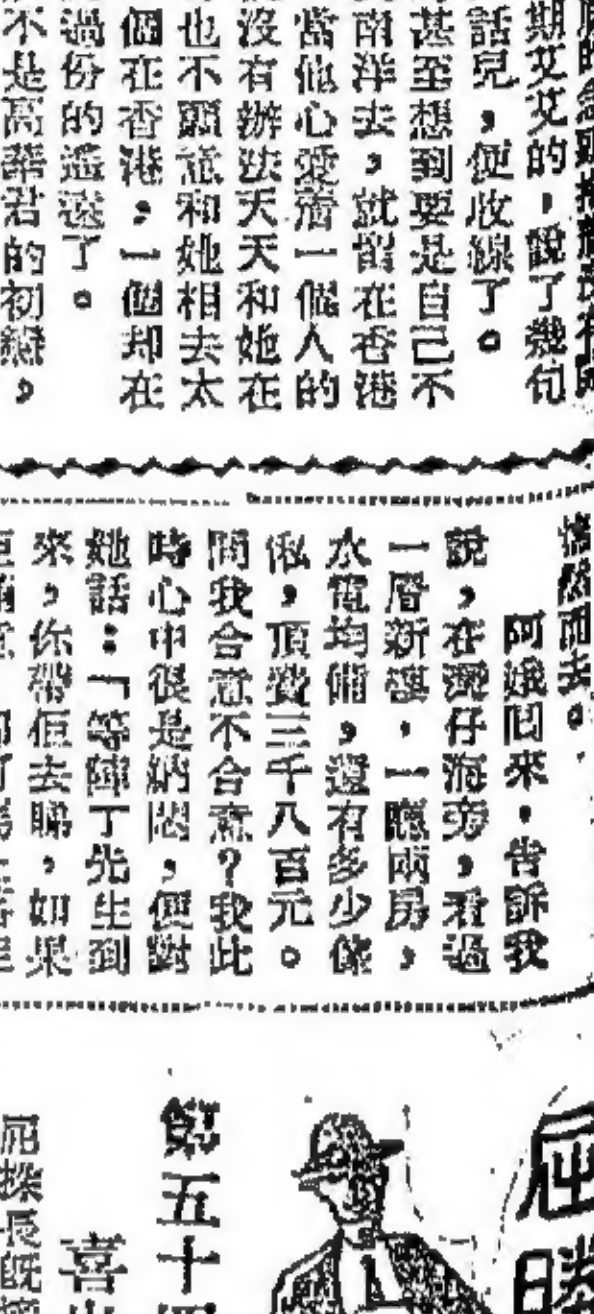 期艾艾的,說了幾句
話兒,便收線了。
甚至想到要是自己不
南洋去,就留在香港
當他心愛着一個人的
沒有辦法天天和她在
也不願意和她相去太
個在香港,一個却在
過份的遙遠了。
不是高華君的初戀,
然而去。
阿娥回來,告訴我
說,在灣仔海旁,看過
一層新樓,一廳兩房,
水電均備,還有多少傢
俬,頂費三千八百元。
問我合意不合意?我此
時心中很是納悶,便對
她話:「等陣丁先生到
來,你帶佢去睇,如果
屈
勝
五十
喜
長既